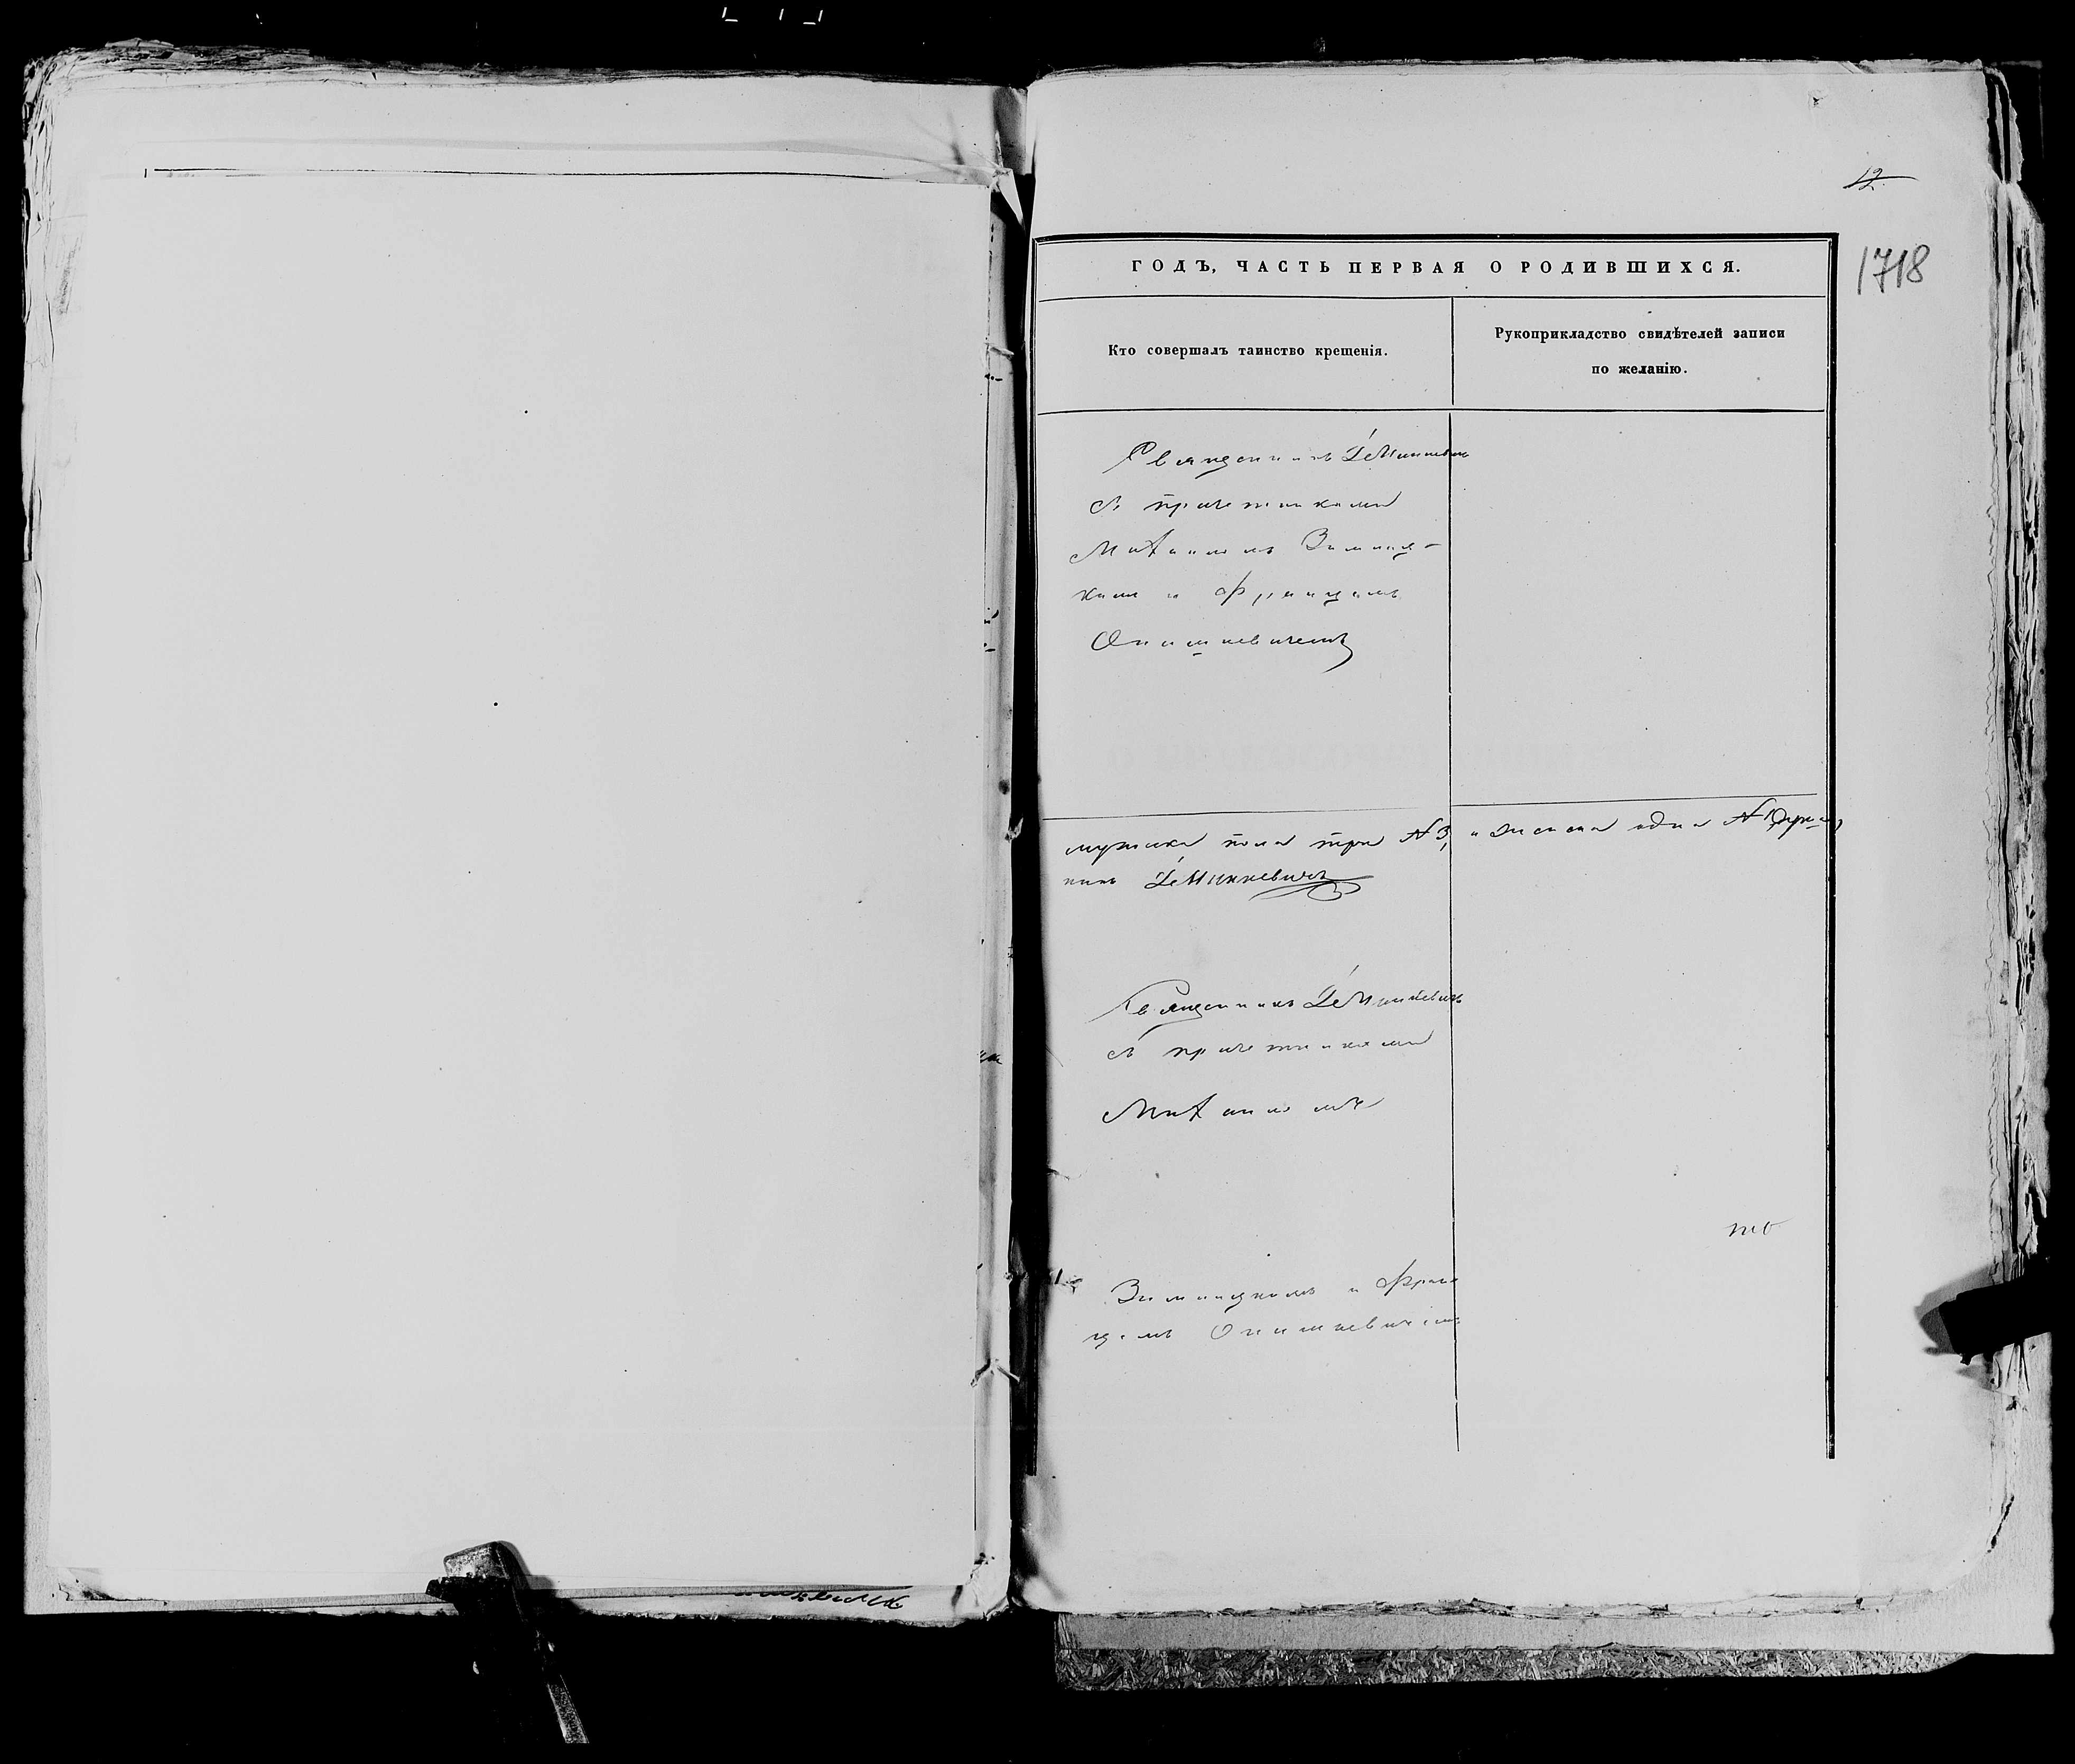 12
1718
ГОДЪ, ЧАСТЬ ПЕРВАЯ О РОДИВШИХСЯ.
Кто совершалъ таинство крещенія.
Рукоприкладство свидѣтелей записи
по желанію.
Священникъ
съ причетниками
Михаиломъ Зимниц-
кимъ и Францомъ
Онишкевичемъ
мужеска пола три № 3, и женска одна № 1
никъ
Священникъ
съ причетниками
Михаиломъ
Зимницкимъ и Фран
цомъ Онишкевичемъ